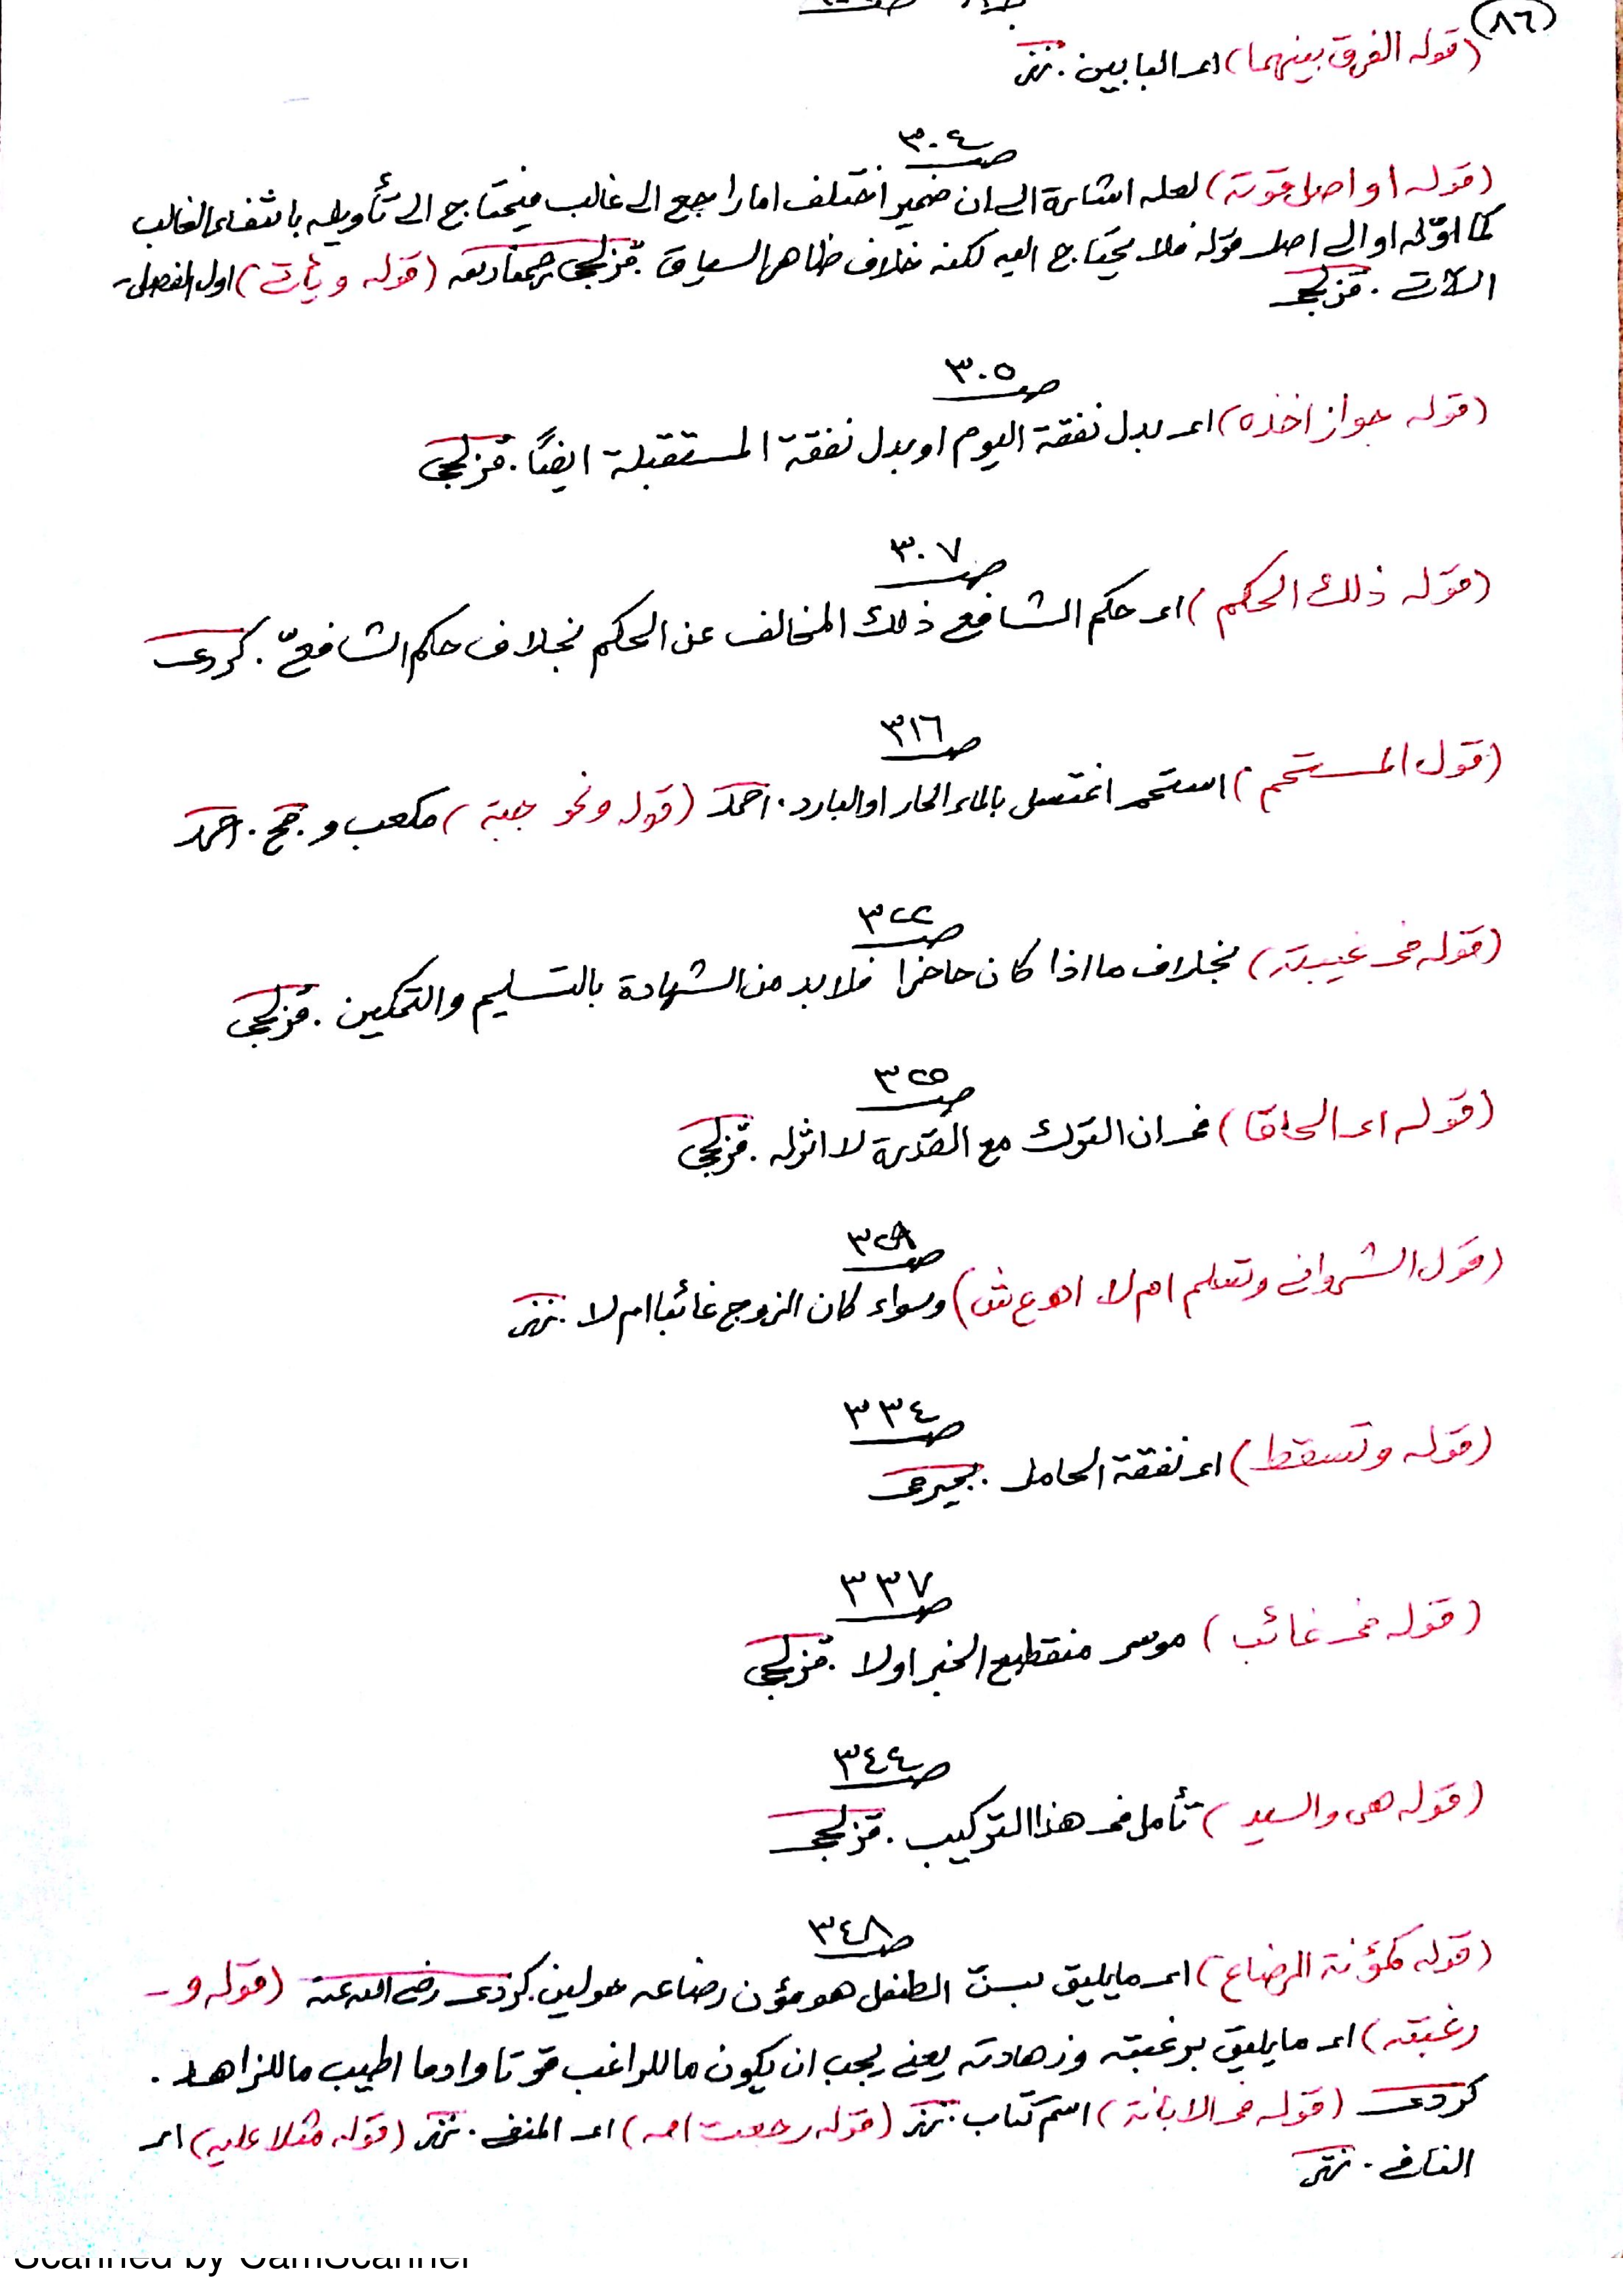 (٨٦)
(قوله الفرق بينهما) اى البابين.
صـ ٣٠٤
(قوله او اصل قوته) لعله اشارة الى ان ضمير اختلف اما راجع الى غالب فيحتاج الى تأويله بانتفاء الغالب
كما اوّله او الى اصل قوله فلا يحتاج اليه لكنه خلاف ظاهر السياق. قزلجى (قوله ويأتى) اول الفصل
الآتى. قزلجى
صـ ٣٠٥
(قوله جواز اخذه) اى بدل نفقة اليوم او بدل نفقة المستقبلة ايضًا. قزلجى
صـ ٣٠٧
(قوله ذلك الحكم) اى حكم الشافعى ذلك المخالف عن الحكم بخلاف حكم الشافعىّ. كردى
صـ ٣١٦
(قول المستحم) استحم اغتسل بالماء الحار او البارد. احمد (قوله ونحو جبة) مكعب و. احمد
صـ ٣٢٢
(قوله فى غيبته) بخلاف ما اذا كان حاضرا فلا بد من الشهادة بالتسليم والتمكين. قزلجى
صـ ٣٢٥
(قوله اى الحاقا) فى ان الترك مع القدرة لا اثر له. قزلجى
صـ ٣٢٨
(قول الشروانى وتسلم ام لا اهـ ع ش) وسواء كان الزوج غائبا ام لا.
صـ ٣٣٤
(قوله وتسقط) اى نفقة الحامل. بجيرمى
صـ ٣٣٧
(قوله فى غائب) موسر منقطع الخبر اولا. قزلجى
صـ ٣٤٤
(قوله هى والسيد) تأمل فى هذا التركيب. قزلجى
صـ ٣٤٨
(قوله كمؤنة الرضاع) اى ما يليق بسنّ الطفل هو مؤن رضاعه حولين. كردى رضى الله عنه (قوله و-
رغبته) اى ما يليق برغبته وزهادته يعنى يجب ان يكون ما للراغب قوتا وادما اطيب ما للزاهد.
كردى (قوله فى الابانة) اسم كتاب. (قوله رجعت امه) اى المنفى. (قوله مثلا عليه) اى
النافى.
Scanned by CamScanner